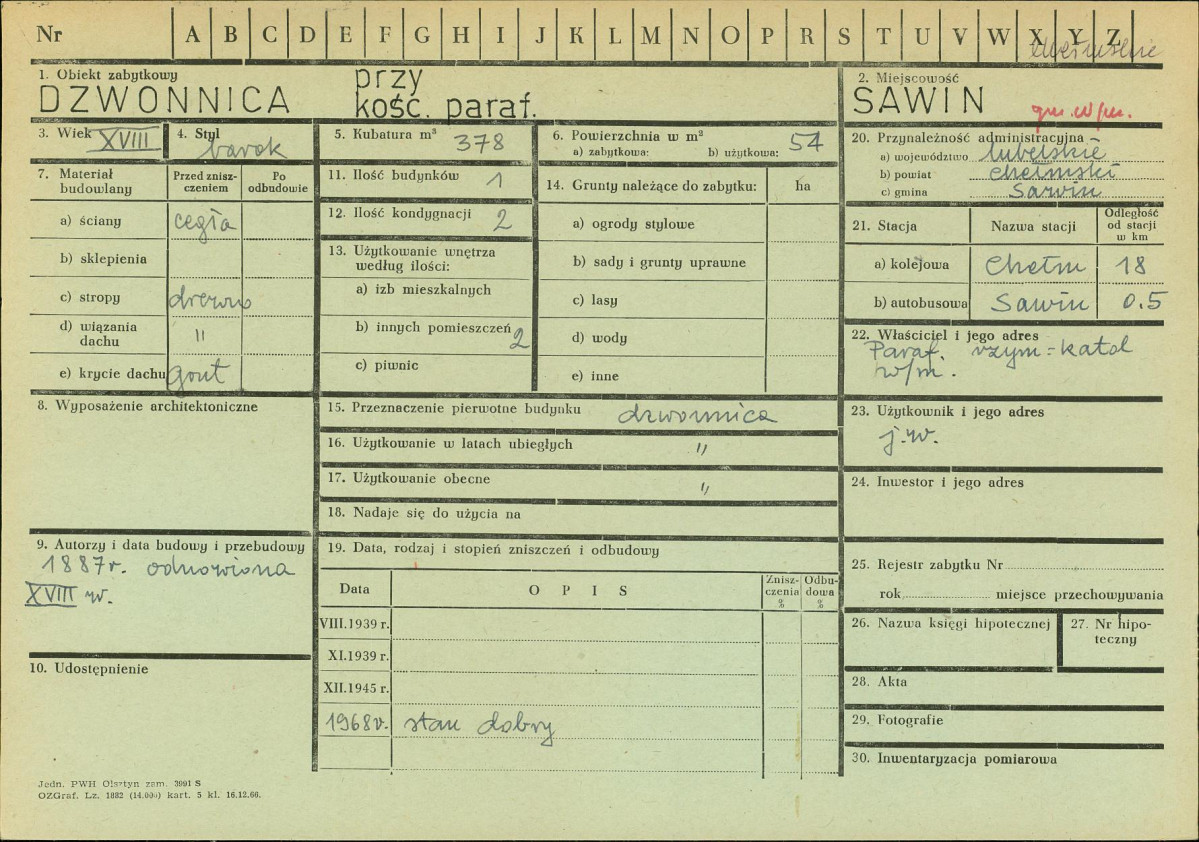 Nr A B C D E F G H I J K L M N O P R S T U V W X Y Z
chełmskie
1. Obiekt zabytkowy
DZWONNICA przy
kość. paraf.
2. Miejscowość
SAWIN
gm. w/m.
3. Wiek XVIII
4. Styl
barok
5. Kubatura m³
378
6. Powierzchnia w m²
a) zabytkowa: b) użytkowa: 54
7. Materiał budowlany
Przed zniszczeniem
Po odbudowie
a) ściany cegła
b) sklepienia
c) stropy drewno
d) wiązania dachu "
e) krycie dachu gont
8. Wyposażenie architektoniczne
9. Autorzy i data budowy i przebudowy
1887r. odnowiona
XVIII w.
10. Udostępnienie
11. Ilość budynków 1
12. Ilość kondygnacji 2
13. Użytkowanie wnętrza
według ilości:
a) izb mieszkalnych
b) innych pomieszczeń 2
c) piwnic
14. Grunty należące do zabytku: ha
a) ogrody stylowe
b) sady i grunty uprawne
c) lasy
d) wody
e) inne
15. Przeznaczenie pierwotne budynku dzwonnica
16. Użytkowanie w latach ubiegłych "
17. Użytkowanie obecne "
18. Nadaje się do użycia na
19. Data, rodzaj i stopień zniszczeń i odbudowy
Data O P I S Zniszczenia % Odbudowa %
VIII.1939 r.
XI.1939 r.
XII.1945 r.
1968r. stan dobry
20. Przynależność administracyjna
a) województwo lubelskie
b) powiat chełmski
c) gmina Sawin
21. Stacja Nazwa stacji Odległość od stacji w km
a) kolejowa Chełm 18
b) autobusowa Sawin 0.5
22. Właściciel i jego adres
Paraf. rzym=katol
w/m.
23. Użytkownik i jego adres
j.w.
24. Inwestor i jego adres
25. Rejestr zabytku Nr
rok, miejsce przechowywania
26. Nazwa księgi hipotecznej
27. Nr hipoteczny
28. Akta
29. Fotografie
30. Inwentaryzacja pomiarowa
Jedn. PWH Olsztyn zam. 3991 S
OZGraf. Lz. 1882 (14.000) kart. 5 kl. 16.12.66.